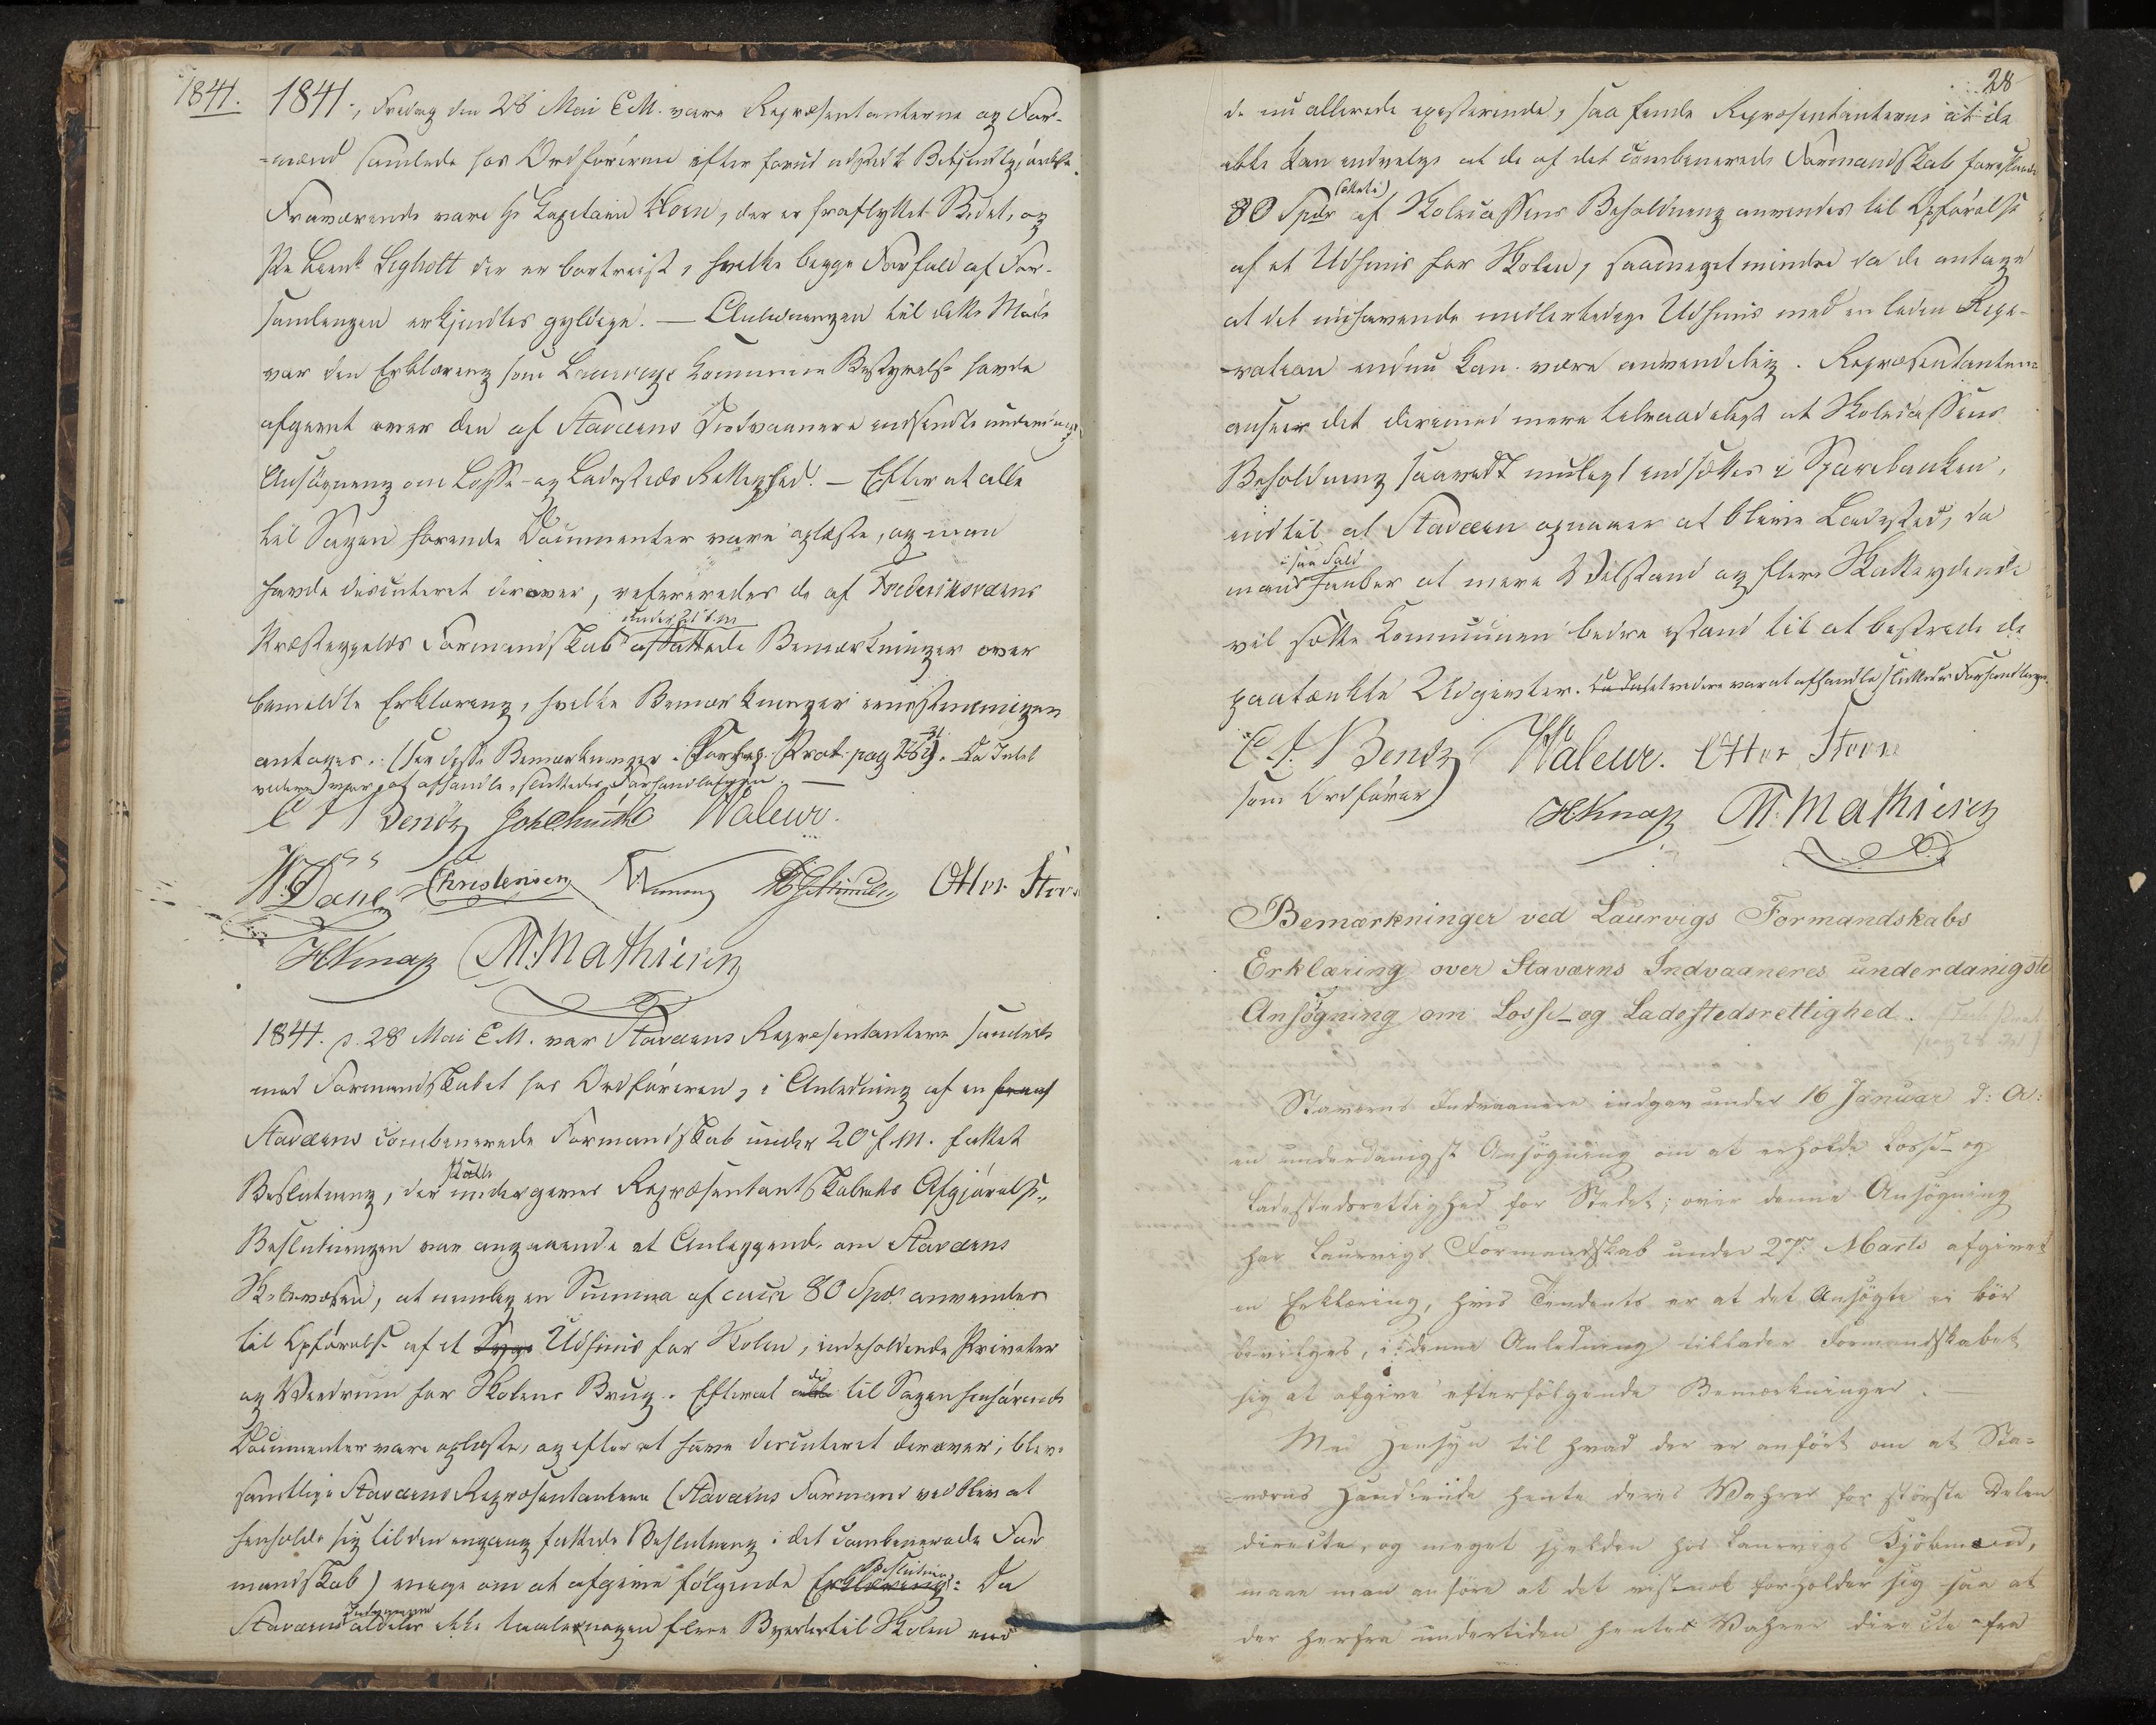 1841.
1841., Fredag den 28 Mai E.M. vare Repræsentanterne og For-
-mænd samlede hos Ordføreren efter forud udstædt Bekjendtgjørelse.
Fraværende vare Hr Capitain Horn, der er fraflyttet Stedet, og
Pr. Lieut. Segholtt der er bortreist, hvilke begge Forfald af For-
samlingen erkjendtes gyldige. — Anledningen til dette Møde
var den Erklæring som Laurvigs Kommune Bestyrelse havde
afgivet over den af Staværns Indvaanere indsendte underdanigste
Ansøgning om Losse- og Ladesteds Rettighed. — Efter at alle
til Sagen hørende Documenter vare oplæste, og man
havde discuteret derover, refereredes de af Frederiksværns
Præstegjelds Formandskab under 21 d.M. affattede Bemærkninger over
bemeldte Erklæring, hvilke Bemærkninger eenstemmigen
antoges. (See disse Bemærkninger i Forhag. Prot. pag 28-31). Da Intet
videre var at afhandle, sluttedes Forhandlingen. —
C F Bendz Joh Schmith Waleur.
H. Dane Christensen Otter Steen
H Knap M. Mathisen
1841. d. 28 Mai E.M. var Staværns Repræsentantere samlede
med Formandskabet hos Ordføreren, i Anledning af en fra af
Staværns combenerede Formandskab under 20 f.M. fattet
Beslutning, der skulle undergives Repræsentantskabets Afgjørelse,
Beslutningen var angaaende et Anliggende om Staværns
Skolevæsen, at nemlig en Summa af circa 80 Spd. anvendes
til Opførelse af et Udhuus for Skolen, indeholdende Priveter
og Vedrum for Skolens Brug. Efterat de til Sagen henhørende
Documenter vare oplæste, og efter at have discuteret derover, blev
samtlige Staværns Repræsentantere (Staværns Formænd vedblev at
henholde sig til den engang fattede Beslutning i det combenerede For
mandskab) enige om at afgive følgende Erklæring Beslutning: Da
Staværns Indvaanere aldeles ikke taaler nogen flere Byrder til Skolen end
28
de nu allerede existerende, saa finde Repræsentanterne at de
ikke kan indvilge at de af det combenerede Formandskab foreslaaede
80 Spdr (otteti) af Skolecassens Beholdning anvendes til Opførelse
af et Udhuus for Skolen, saameget mindre da de antage
at det nuhavende midlertidige Udhuus med en liden Repa-
-ration endnu kan være anvendelig. Repræsentanterne
anseer det derimod mere tilraadeligt at Skolecassens
Beholdning saavidt muligt indsættes i Sparebanken,
indtil at Staværn opnaaer at blive Ladested, da
man i saa Fald haaber at mere Velstand og flere Skatteydende
vil sætte Kommunen bedre istand til at bestride de
paatænkte Udgivter. Da Intet videre var at afhandle sluttedes Forhandlingen.
C. F. Bendz Waleur. Otter Steen
som Ordfører
H Knap M. Mathisen
Bemærkninger ved Laurvigs Formandskabs
Erklæring over Staværns Indvaaneres underdanigste
Ansøgning om Losse- og Ladestedsrettighed.
pag 28 31)
Staværns Indvaanere indgav under 16 Januar d: A:
en underdanigst Ansøgning om at erholde Losse- og
Ladestedsrettighed for Stedet; over denne Ansøgning
har Laurvigs Formandskab under 27de Marts afgivet
en Erklæring, hvis Tendents er at det Ansøgte ei bör
bevilges, i denne Anledning tillader Formandskabet
sig at afgive efterfölgende Bemærkninger.
Med Hensyn til hvad der er anfört om at Sta-
-værns Handlende hente deres Vahrer for störste Delen
directe, og meget sjelden hos Laurvigs Kjöbmænd,
maae man anföre at det vistnok forholder sig saa at
der herfra undertiden hentes Vahrer directe fra